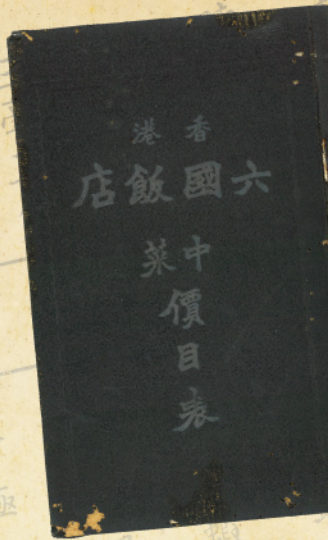 香港
六國飯店
中菜
價
目
表